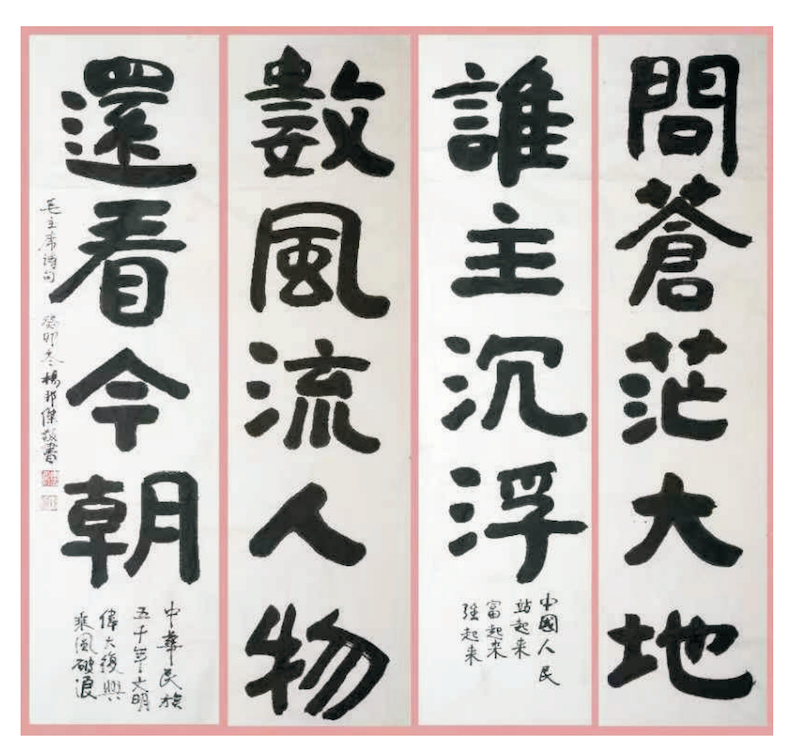 問蒼茫大地
誰主沉浮
中國人民
站起来
富起来
强起来
數風流人物
還看今朝
中華民族
五千年文明
偉大復興
乘風破浪
毛主席詩句 癸卯冬 楊邦傑敬書